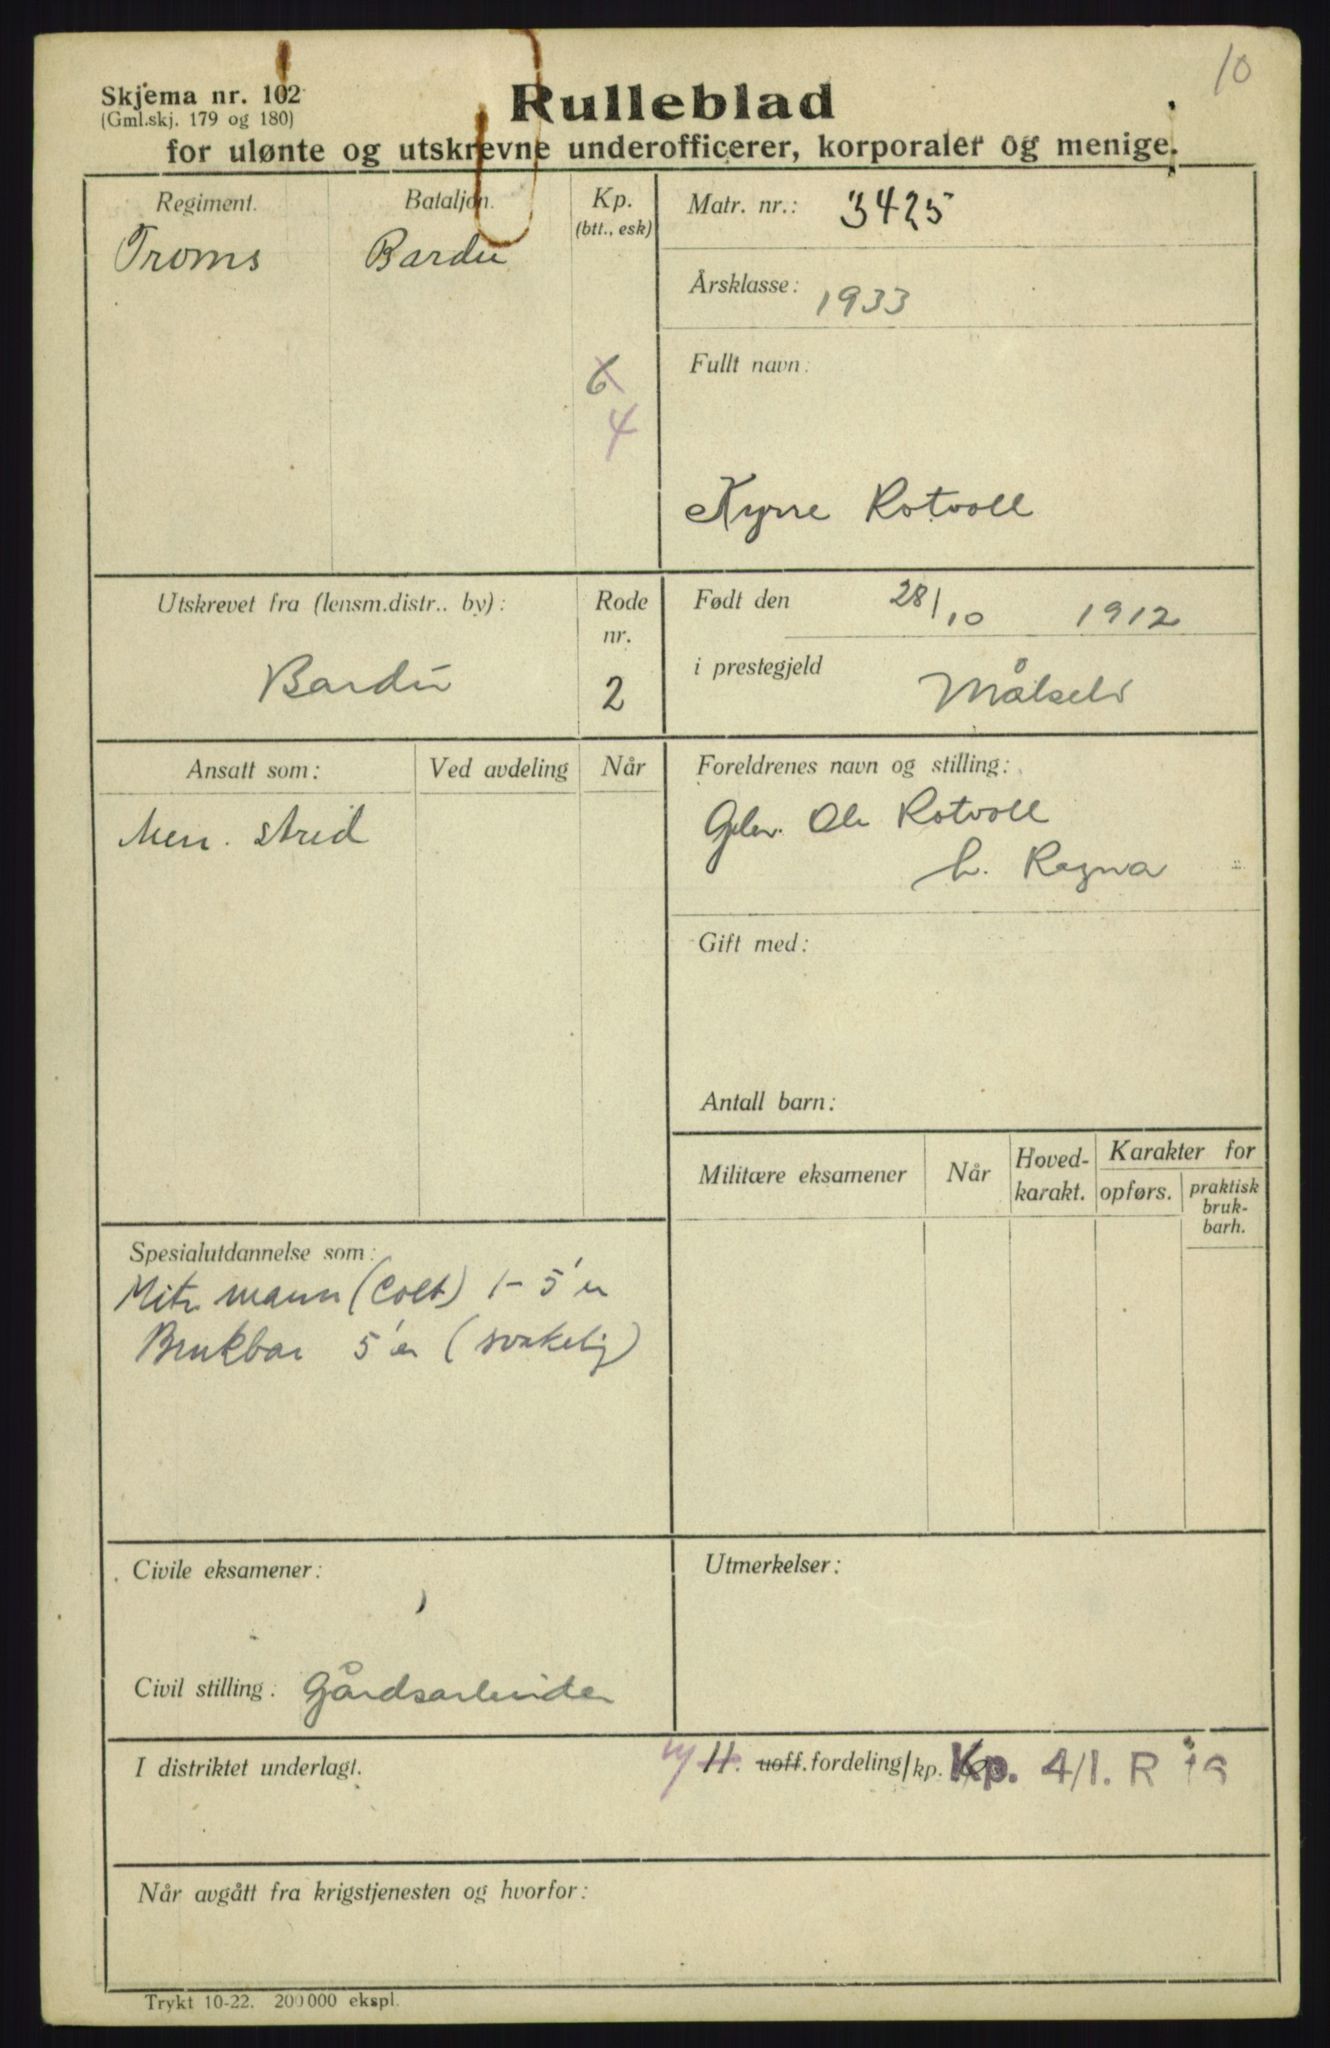 10
Skjema nr. 102
(Gml.skj. 179 og 180)
Rulleblad
for ulønte og utskrevne underofficerer, korporaler og menige.
Regiment.
Bataljon.
Kp.
(btt., esk)
Troms
Bardu
6
4
Matr. nr.: 3425
Årsklasse: 1933
Fullt navn:
Kyrre Rotvoll
Utskrevet fra (lensm.distr.. by):
Bardu
Rode
nr.
2
Født den 28/10 1912
i prestegjeld Målselv
Ansatt som:
Ved avdeling
Når
Men. strid
Foreldrenes navn og stilling:
Ole Rotvoll
h. Ragna
Gift med:
Antall barn:
Militære eksamener
Når
Hoved-
karakt.
Karakter for
opførs.
praktisk
bruk-
barh.
Spesialutdannelse som:
Mitr mann (Colt) 1 - 5'er
Brukbar 5'er (svakelig)
Civile eksamener:
Utmerkelser:
Civil stilling: Gårdsarbeider
I distriktet underlagt.
11. uoff. fordeling/kp. Kp. 4/I. R 16
Når avgått fra krigstjenesten og hvorfor:
Trykt 10-22. 200000 ekspl.